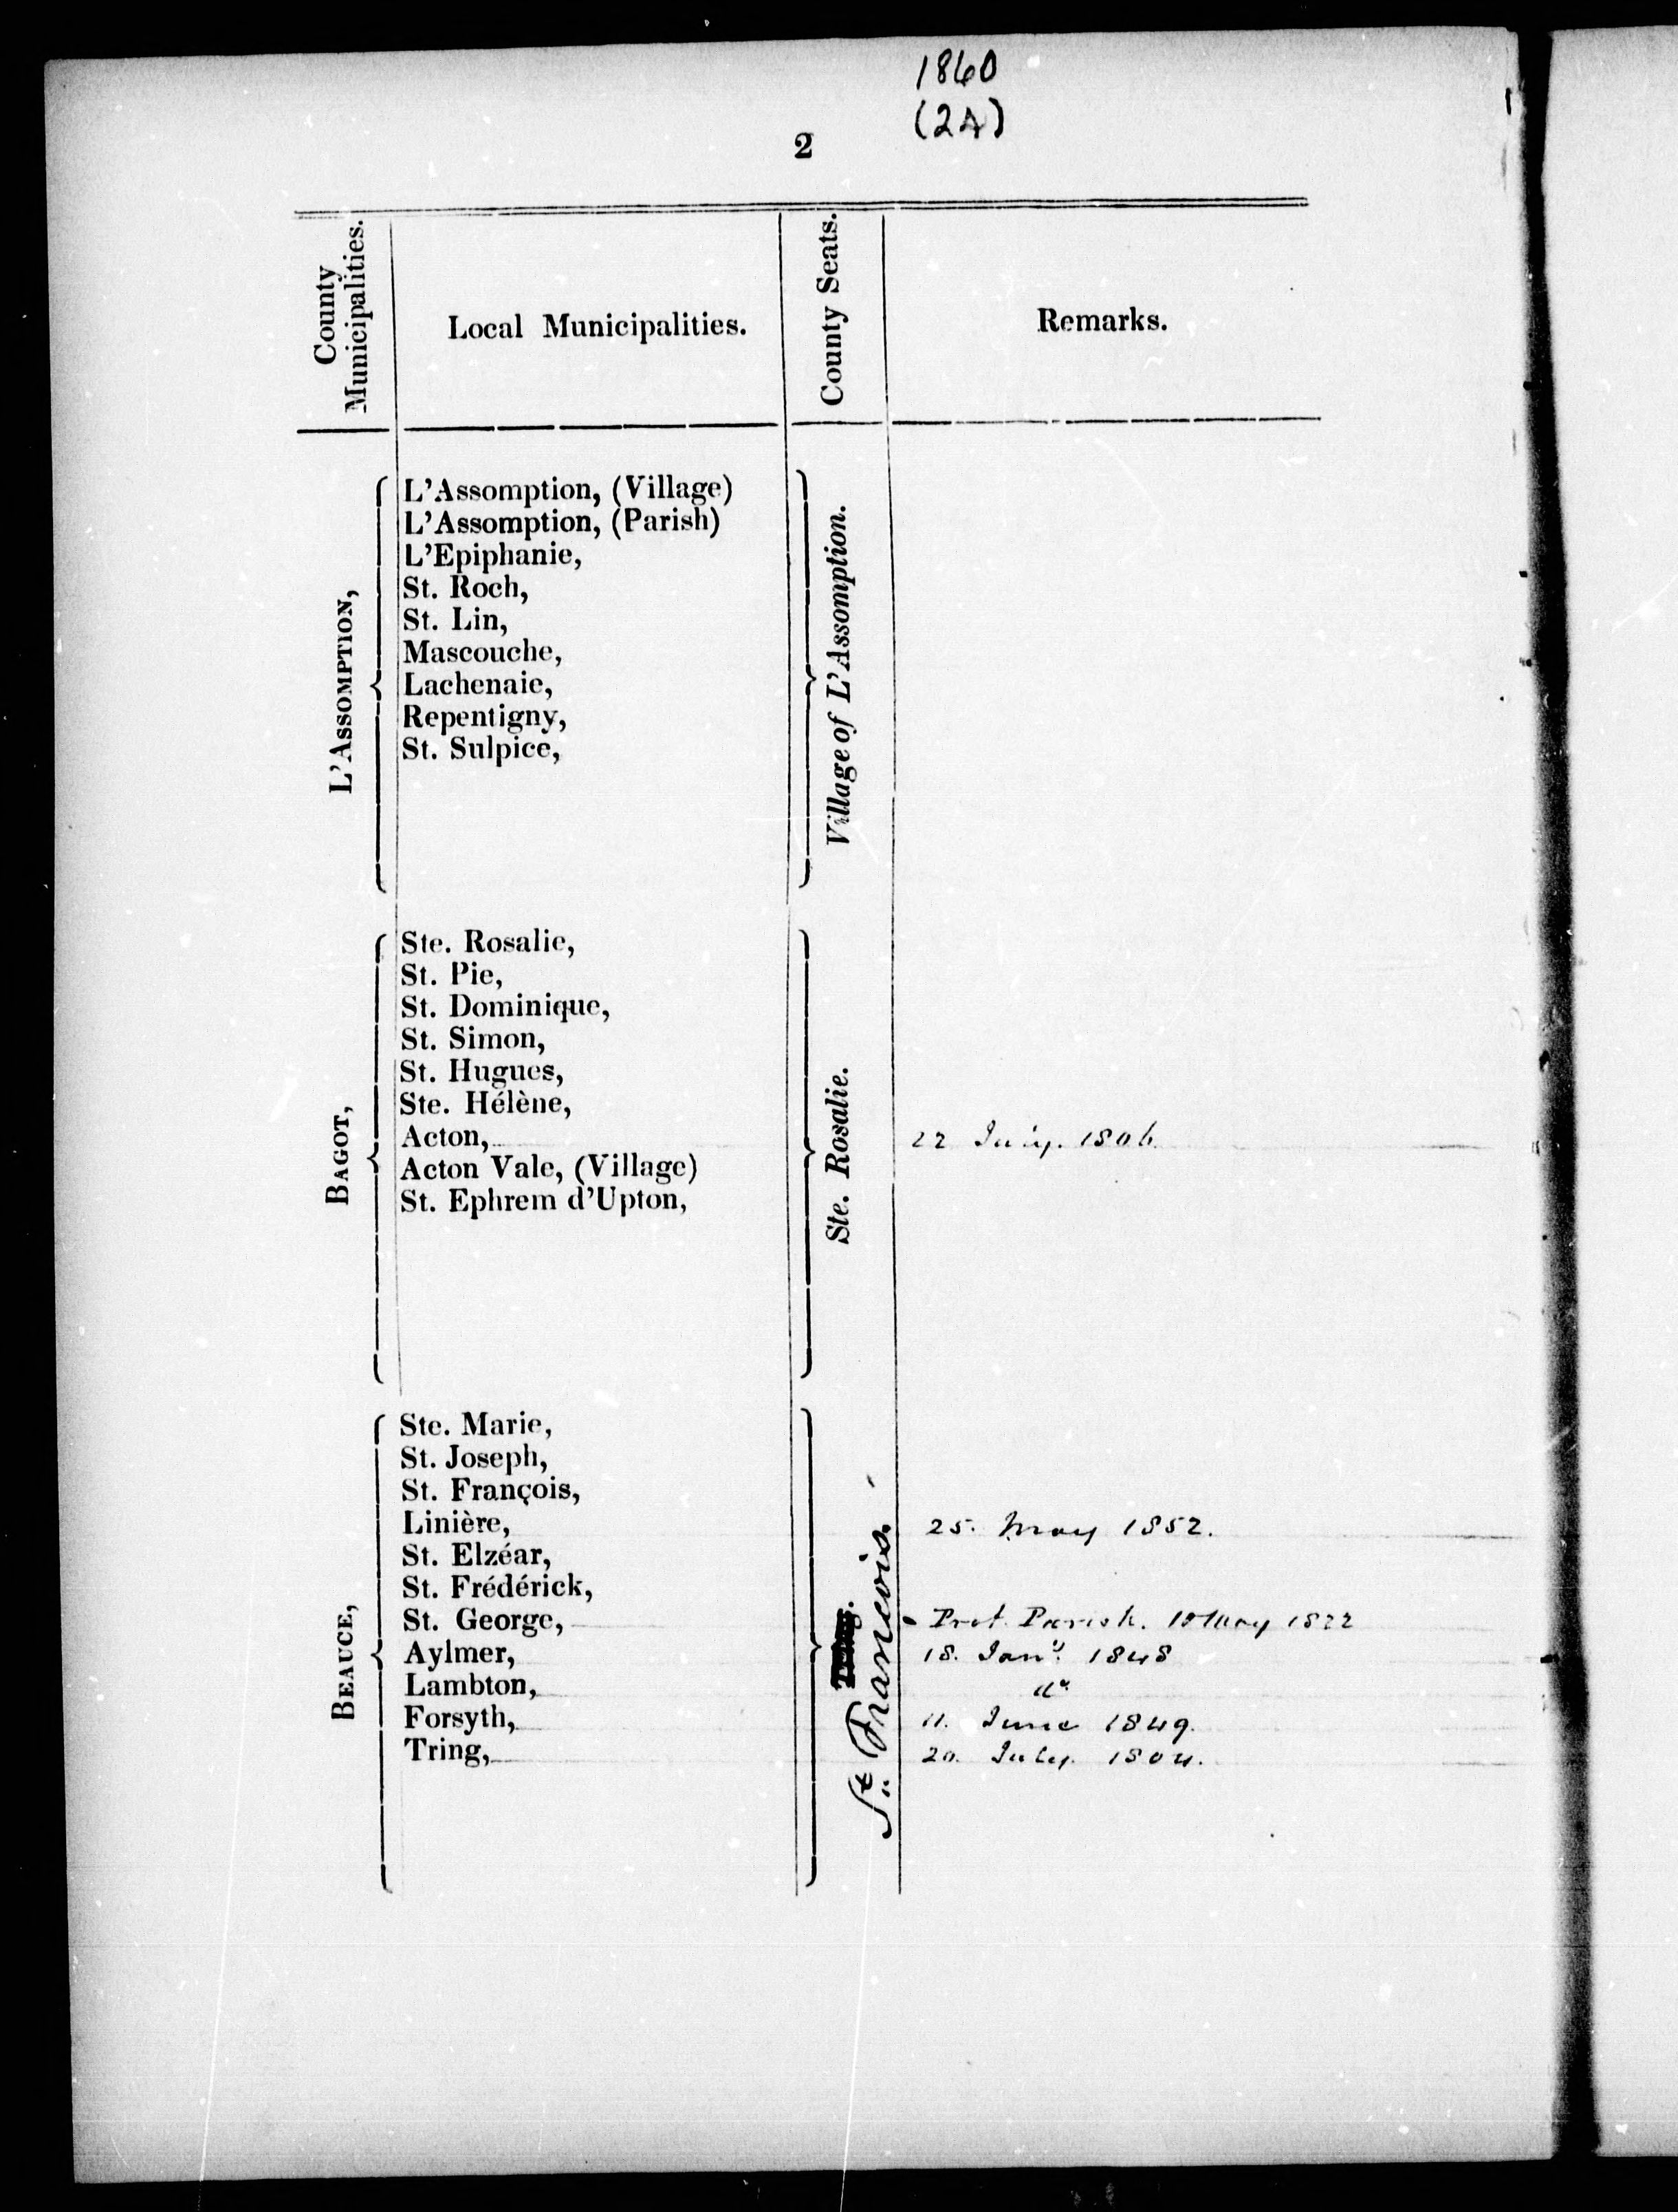 1860
(2A)
2
County Municipalities.
Local Municipalities.
County Seats.
Remarks.
L'Assomption,
L'Assomption, (Village)
L'Assomption, (Parish)
L'Epiphanie,
St. Roch,
St. Lin,
Mascouche,
Lachenaie,
Repentigny,
St. Sulpice,
Village of L'Assomption.
Bagot,
Ste. Rosalie,
St. Pie,
St. Dominique,
St. Simon,
St. Hugues,
Ste. Hélène,
Acton, 22 July. 1806
Acton Vale, (Village)
St. Ephrem d'Upton,
Ste. Rosalie.
Beauce,
Ste. Marie,
St. Joseph,
St. François,
Linière, 25. May 1852.
St. Elzéar,
St. Frédérick,
St. George, Prot. Parish. 10 May 1822
Aylmer, 18. Jany 1848
Lambton,
Forsyth, 11. June 1849.
Tring, 20. July. 1804.
St. Francois.